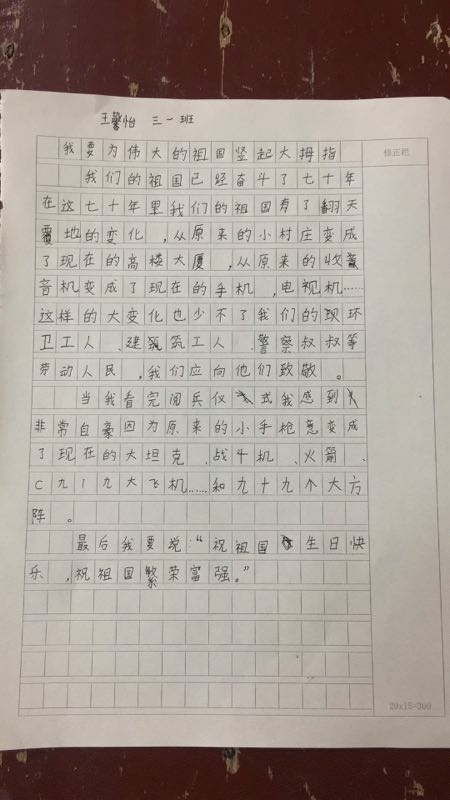 王馨怡 三一班
我要为伟大的祖国竖起大拇指
修正栏
我们的祖国已经奋斗了七十年
在这七十年里我们的祖国有了翻天
覆地的变化,从原来的小村庄变成
了现在的高楼大厦,从原来的收
音机变成了现在的手机,电视机……
这样的大变化也少不了我们的环
卫工人、建筑工人、警察叔叔等
劳动人民,我们应向他们致敬。
当我看完阅兵仪式我感到
非常自豪因为原来的小手枪竟变成
了现在的大坦克、战斗机、火箭、
C九1九大飞机……和九十九个大方
阵。
最后我要说:“祝祖国生日快
乐,祝祖国繁荣富强。”
20x15=300